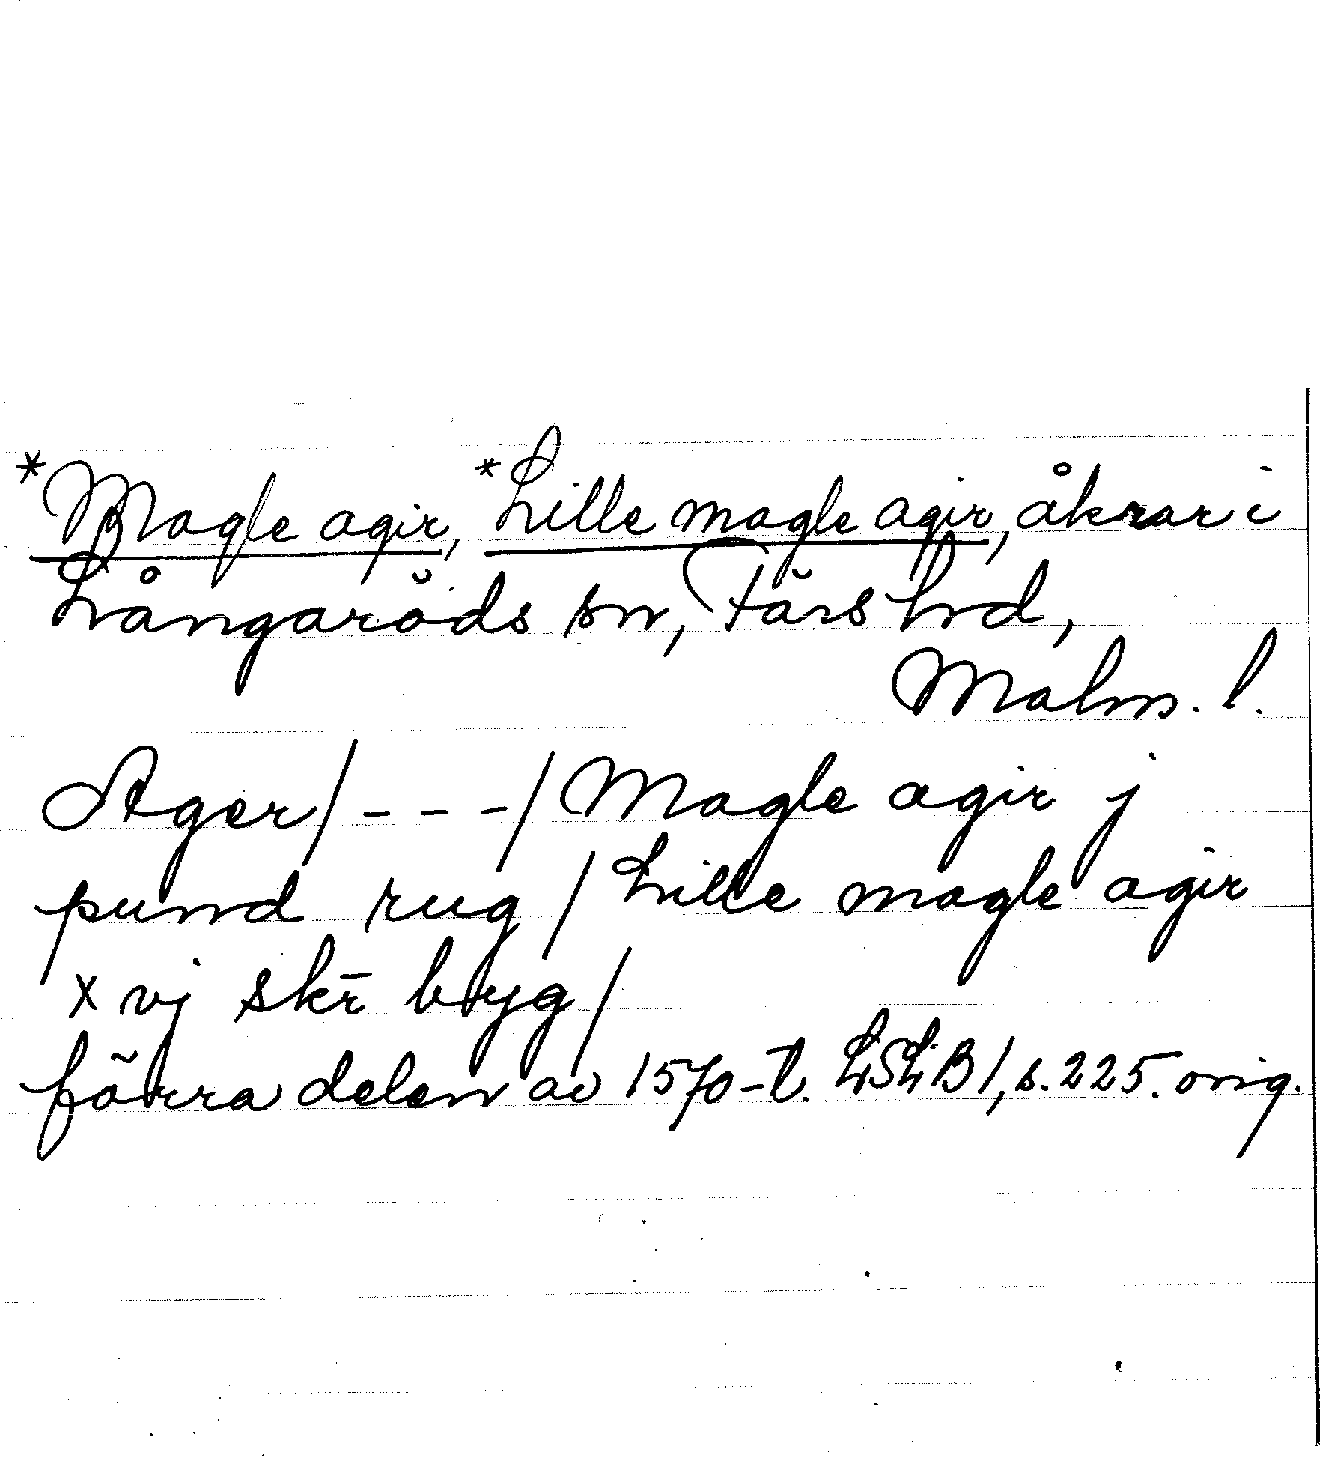 *Magle agir, *Lille magle agir, åkrar i
Långaröds sn, Färs hd,
Malm. l.
Ager/---/Magle agir j
pund rug / Lille magle agir
x vj skr̄ byg/
förra delen av 1570-t. LSLB 1, s. 225. orig.